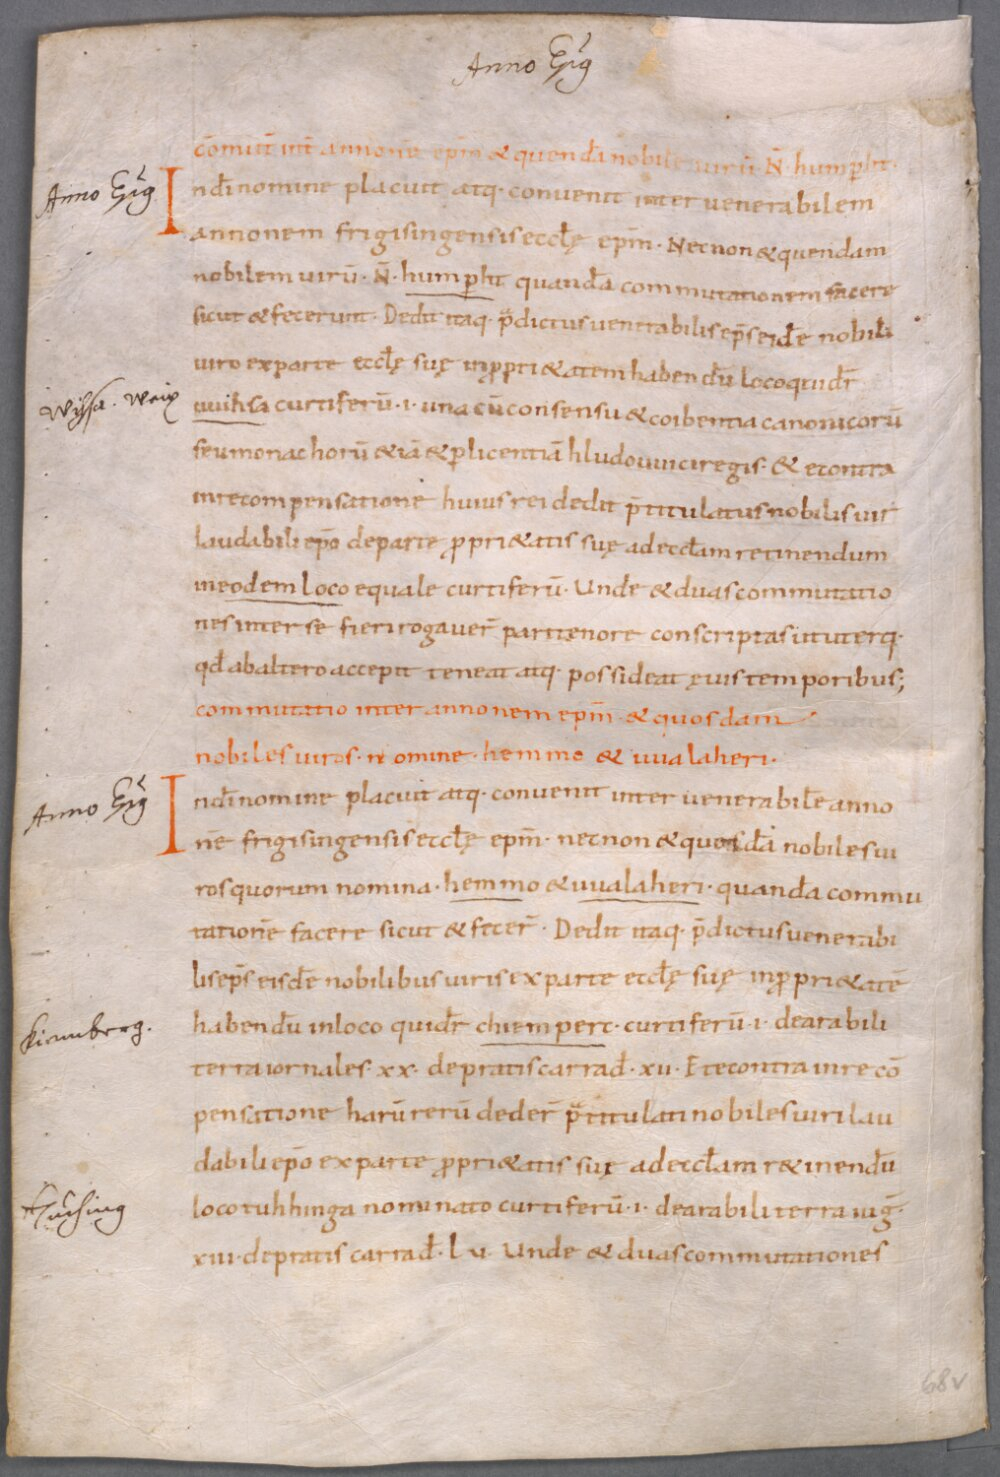 Anno Ep̃s
c̄omut̄ int̄ annonē ep̄m & quendā nobilē uirū N̄ humpht·
Anno Ep̃s
Ind̄i nomine placuit atq· convenit inter venerabilem
annonem frigisingensis eccłę ep̄m· Necnon & quendam
nobilem uirū· N̄· humpht quandā commutationem facere
sicut & fecerunt· Dedit itaq· p̄dictus venerabilis ep̄s eidē nobili
uiro ex parte eccłę suę in ꝓpri&atem habendū loco q̇ ui dr̄
Wihsa. Weix
uuihsa curtiferū·i· una cū consensu & coibentia canonicorū
seu monachorū & iā & ꝑ licentiā hludouuici regis· & econtra
in recompensatione huius rei dedit p̄titulatus nobilis uir
laudabili ep̄o de parte ꝓpri&atis suę ad eccłam retinendum
in eodem loco equale curtiferū· Unde & duas commutatio
nes inter se fieri rogauer̄ pari tenore conscriptas ut uterq·
qd̄ ab altero accepit teneat atq· possideat ęuis temporibus;
commutatio inter annonem ep̄m· & quosdam
nobiles uiros· nomine· hemmo & uualaheri·
Anno Ep̃s
Ind̄i nomine placuit atq· convenit inter uenerabilē anno
nē frigisingensis eccłę ep̄m· necnon & quosdā nobiles ui
ros quorum nomina· hemmo & uualaheri· quandā commu
tationē facere sicut & fecer̄· Dedit itaq· p̄dictus uenerabi
lis ep̄s eisdē nobilibus uiris ex parte eccłę suę in ꝓpri&atē
Kirnnberg.
habendū in loco qui dr̄ chiemperc· curtiferū·i· de arabili
terra iornales·xx· de pratis carrad̄·xii· Et econtra in recō
pensatione harū rerū deder̄ p̄titulati nobiles uiri lau
dabili ep̄o ex parte ꝓpri&atis suę ad eccłam r&inendū
Tuching
loco tuhhinga nominato curtiferū·i· de arabili terra iug̅·
xiii· de pratis carrad̄· lu· Unde & duas commutationes
68v